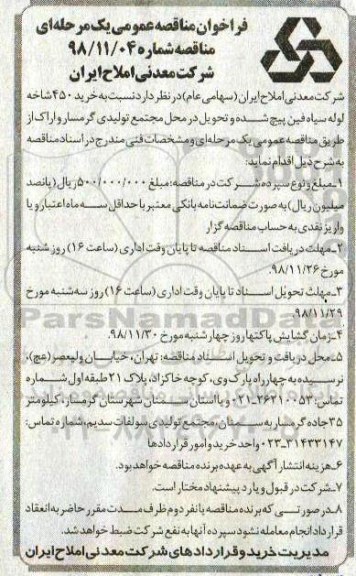 فراخوان مناقصه عمومی یک مرحله‌ای
مناقصه شماره ۹۸/۱۱/۰۴
شرکت معدنی املاح ایران
شرکت معدنی املاح ایران (سهامی عام) در نظر دارد نسبت به خرید ۴۵۰ شاخه
لوله سیاه فین پیچ شده و تحویل در محل مجتمع تولیدی گرمسار و اراک از
طریق مناقصه عمومی یک مرحله‌ای و مشخصات فنی مندرج در اسناد مناقصه
به شرح ذیل اقدام نماید:
۱-مبلغ و نوع سپرده شرکت در مناقصه: مبلغ ۵۰۰/۰۰۰/۰۰۰ ریال (پانصد
میلیون ریال) به صورت ضمانت‌نامه بانکی معتبر با حداقل سه ماه اعتبار و یا
واریز نقدی به حساب مناقصه گزار
۲-مهلت دریافت اسناد مناقصه تا پایان وقت اداری (ساعت ۱۶) روز شنبه
مورخ ۹۸/۱۱/۲۶.
۳-مهلت تحویل اسناد تا پایان وقت اداری (ساعت ۱۶) روز سه‌شنبه مورخ
۹۸/۱۱/۲۹
۴-زمان گشایش پاکتها روز چهارشنبه مورخ ۹۸/۱۱/۳۰.
۵-محل دریافت و تحویل اسناد مناقصه: تهران، خیابان ولیعصر (عج)،
نرسیده به چهارراه پارک وی، کوچه خاکزاد، پلاک ۲۱ طبقه اول شماره
تماس: ۲۶۲۱۰۰۵۳-۰۲۱ و یا استان سمنان شهرستان گرمسار، کیلومتر
۳۵ جاده گرمسار به سمنان، مجتمع تولیدی سولفات سدیم، شماره تماس:
۳۱۴۳۳۱۴۷-۰۲۳ واحد خرید و امور قراردادها
۶-هزینه انتشار آگهی به عهده برنده مناقصه خواهد بود.
۷-شرکت در قبول و یا رد پیشنهاد مختار است.
۸-در صورتی که برنده مناقصه یا نفر دوم ظرف مدت مقرر حاضر به انعقاد
قرارداد انجام معامله نشود سپرده آنها به نفع شرکت ضبط خواهد شد.
مدیریت خرید و قراردادهای شرکت معدنی املاح ایران
ParsNamadData